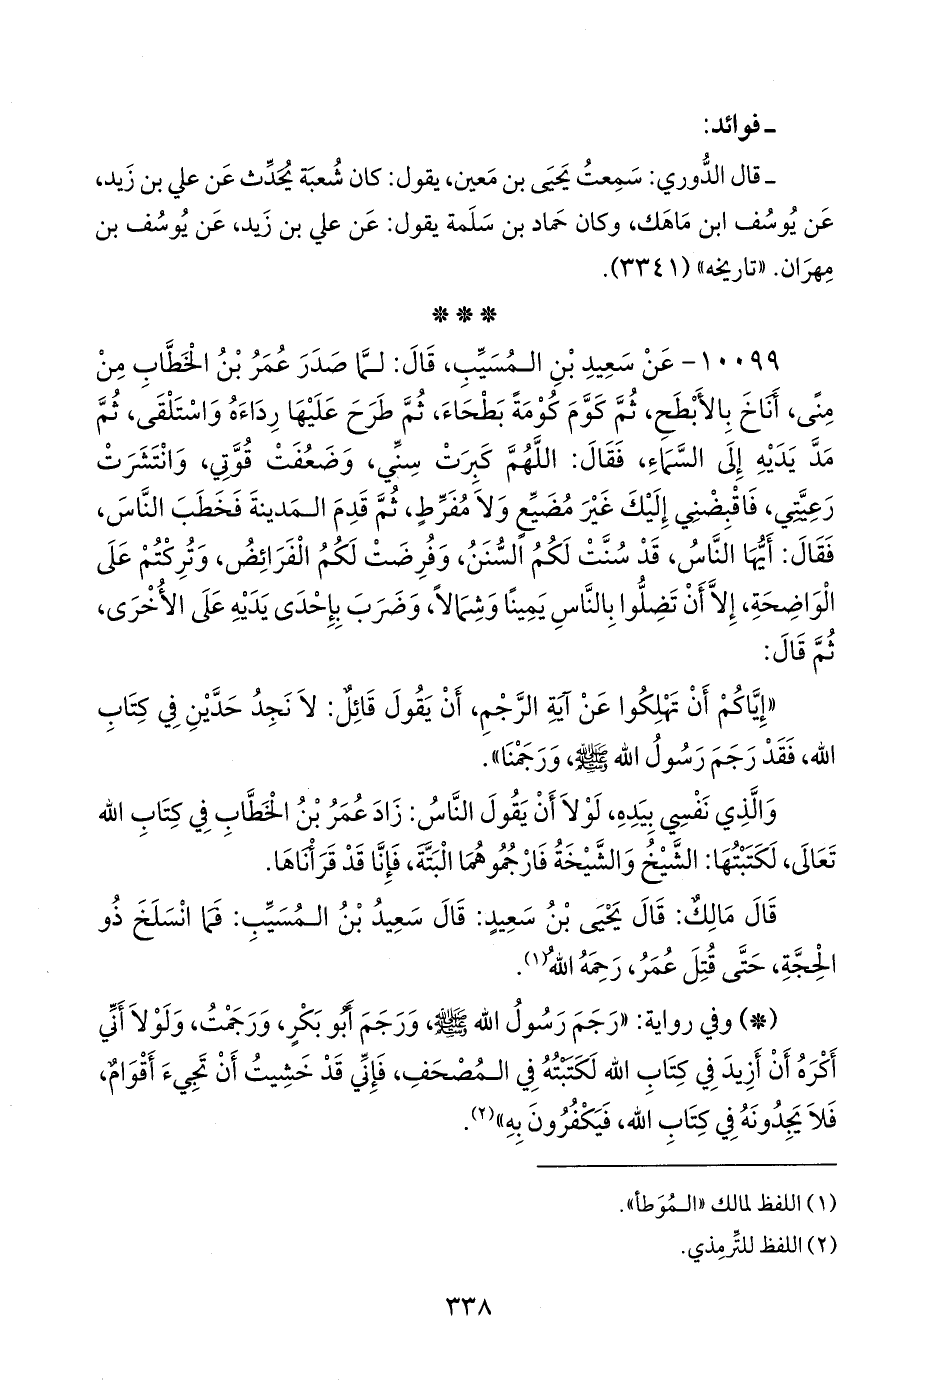 ـ فوائد:
ـ قال الدُّوري: سَمِعتُ يَحيَى بن مَعين، يقول: كان شُعبَة يُحَدِّث عَن علي بن زَيد،
عَن يُوسُف ابن مَاهَك، وكان حَماد بن سَلَمة يقول: عَن علي بن زَيد، عَن يُوسُف بن
مِهرَان. «تاريخه» (٣٣٤١).
* * *
١٠٠٩٩- عَنْ سَعِيدِ بْنِ الـمُسَيِّبِ، قَالَ: لـمَّا صَدَرَ عُمَرُ بْنُ الْخَطَّابِ مِنْ
مِنًى، أَنَاخَ بِالأَبْطَحِ، ثُمَّ كَوَّمَ كُومَةً بَطْحَاءَ، ثُمَّ طَرَحَ عَلَيْهَا رِدَاءَهُ وَاسْتَلْقَى، ثُمَّ
مَدَّ يَدَيْهِ إِلَى السَّمَاءِ، فَقَالَ: اللَّهُمَّ كَبِرَتْ سِنِّي، وَضَعُفَتْ قُوَّتِي، وَانْتَشَرَتْ
رَعِيَّتِي، فَاقْبِضْنِي إِلَيْكَ غَيْرَ مُضَيِّعٍ وَلاَ مُفَرِّطٍ، ثُمَّ قَدِمَ الـمَدينةَ فَخَطَبَ النَّاسَ،
فَقَالَ: أَيُّهَا النَّاسُ، قَدْ سُنَّتْ لَكُمُ السُّنَنُ، وَفُرِضَتْ لَكُمُ الْفَرَائِضُ، وَتُرِكْتُمْ عَلَى
الْوَاضِحَةِ، إِلاَّ أَنْ تَضِلُّوا بِالنَّاسِ يَمِينًا وَشِمَالاً، وَضَرَبَ بِإِحْدَى يَدَيْهِ عَلَى الأُخْرَى،
ثُمَّ قَالَ:
«إِيَّاكُمْ أَنْ تَهْلِكُوا عَنْ آيَةِ الرَّجْمِ، أَنْ يَقُولَ قَائِلٌ: لاَ نَجِدُ حَدَّيْنِ فِي كِتَابِ
الله، فَقَدْ رَجَمَ رَسُولُ الله ﷺ، وَرَجَمْنَا».
وَالَّذِي نَفْسِي بِيَدِهِ، لَوْلاَ أَنْ يَقُولَ النَّاسُ: زَادَ عُمَرُ بْنُ الْخَطَّابِ فِي كِتَابِ الله
تَعَالَى، لَكَتَبْتُهَا: الشَّيْخُ وَالشَّيْخَةُ فَارْجُمُوهُمَا الْبَتَّةَ، فَإِنَّا قَدْ قَرَأْنَاهَا.
قَالَ مَالِكٌ: قَالَ يَحْيَى بْنُ سَعِيدٍ: قَالَ سَعِيدُ بْنُ الـمُسَيِّبِ: فَمَا انْسَلَخَ ذُو
الْحِجَّةِ، حَتَّى قُتِلَ عُمَرُ، رَحِمَهُ اللهُ(١).
(*) وفي رواية: «رَجَمَ رَسُولُ الله ﷺ، وَرَجَمَ أَبُو بَكْرٍ، وَرَجَمْتُ، وَلَوْلاَ أَنِّي
أَكْرَهُ أَنْ أَزِيدَ فِي كِتَابِ الله لَكَتَبْتُهُ فِي الـمُصْحَفِ، فَإِنِّي قَدْ خَشِيتُ أَنْ تَجِيءَ أَقْوَامٌ،
فَلاَ يَجِدُونَهُ فِي كِتَابِ الله، فَيَكْفُرُونَ بِهِ»(٢).
(١) اللفظ لمالك «الـمُوَطأ».
(٢) اللفظ للتِّرمِذي.
٣٣٨